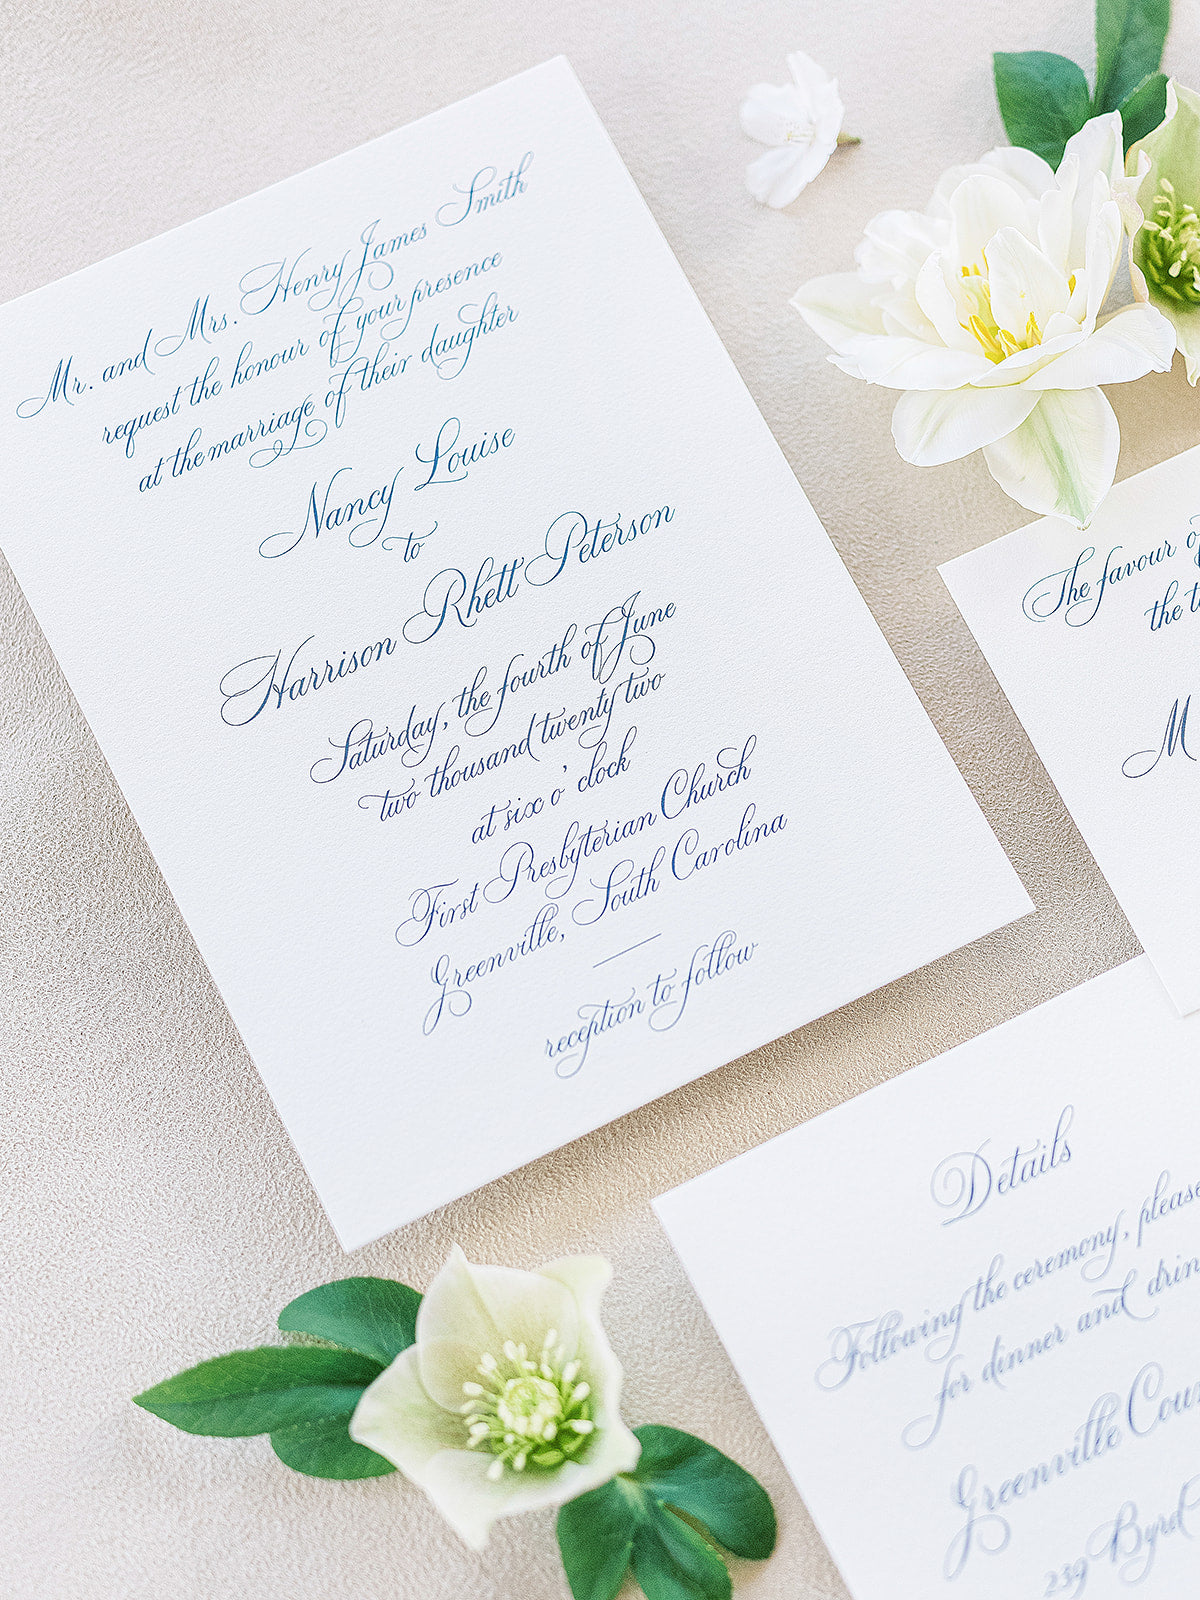 Mr. and Mrs. Henry James Smith
request the honour of your presence
at the marriage of their daughter
Nancy Louise
to
Harrison Rhett Peterson
Saturday, the fourth of June
two thousand twenty two
at six o' clock
First Presbyterian Church
Greenville, South Carolina
reception to follow
The favour of
the
M
Details
Following the ceremony, please
for dinner and
Greenville
239 Byrd